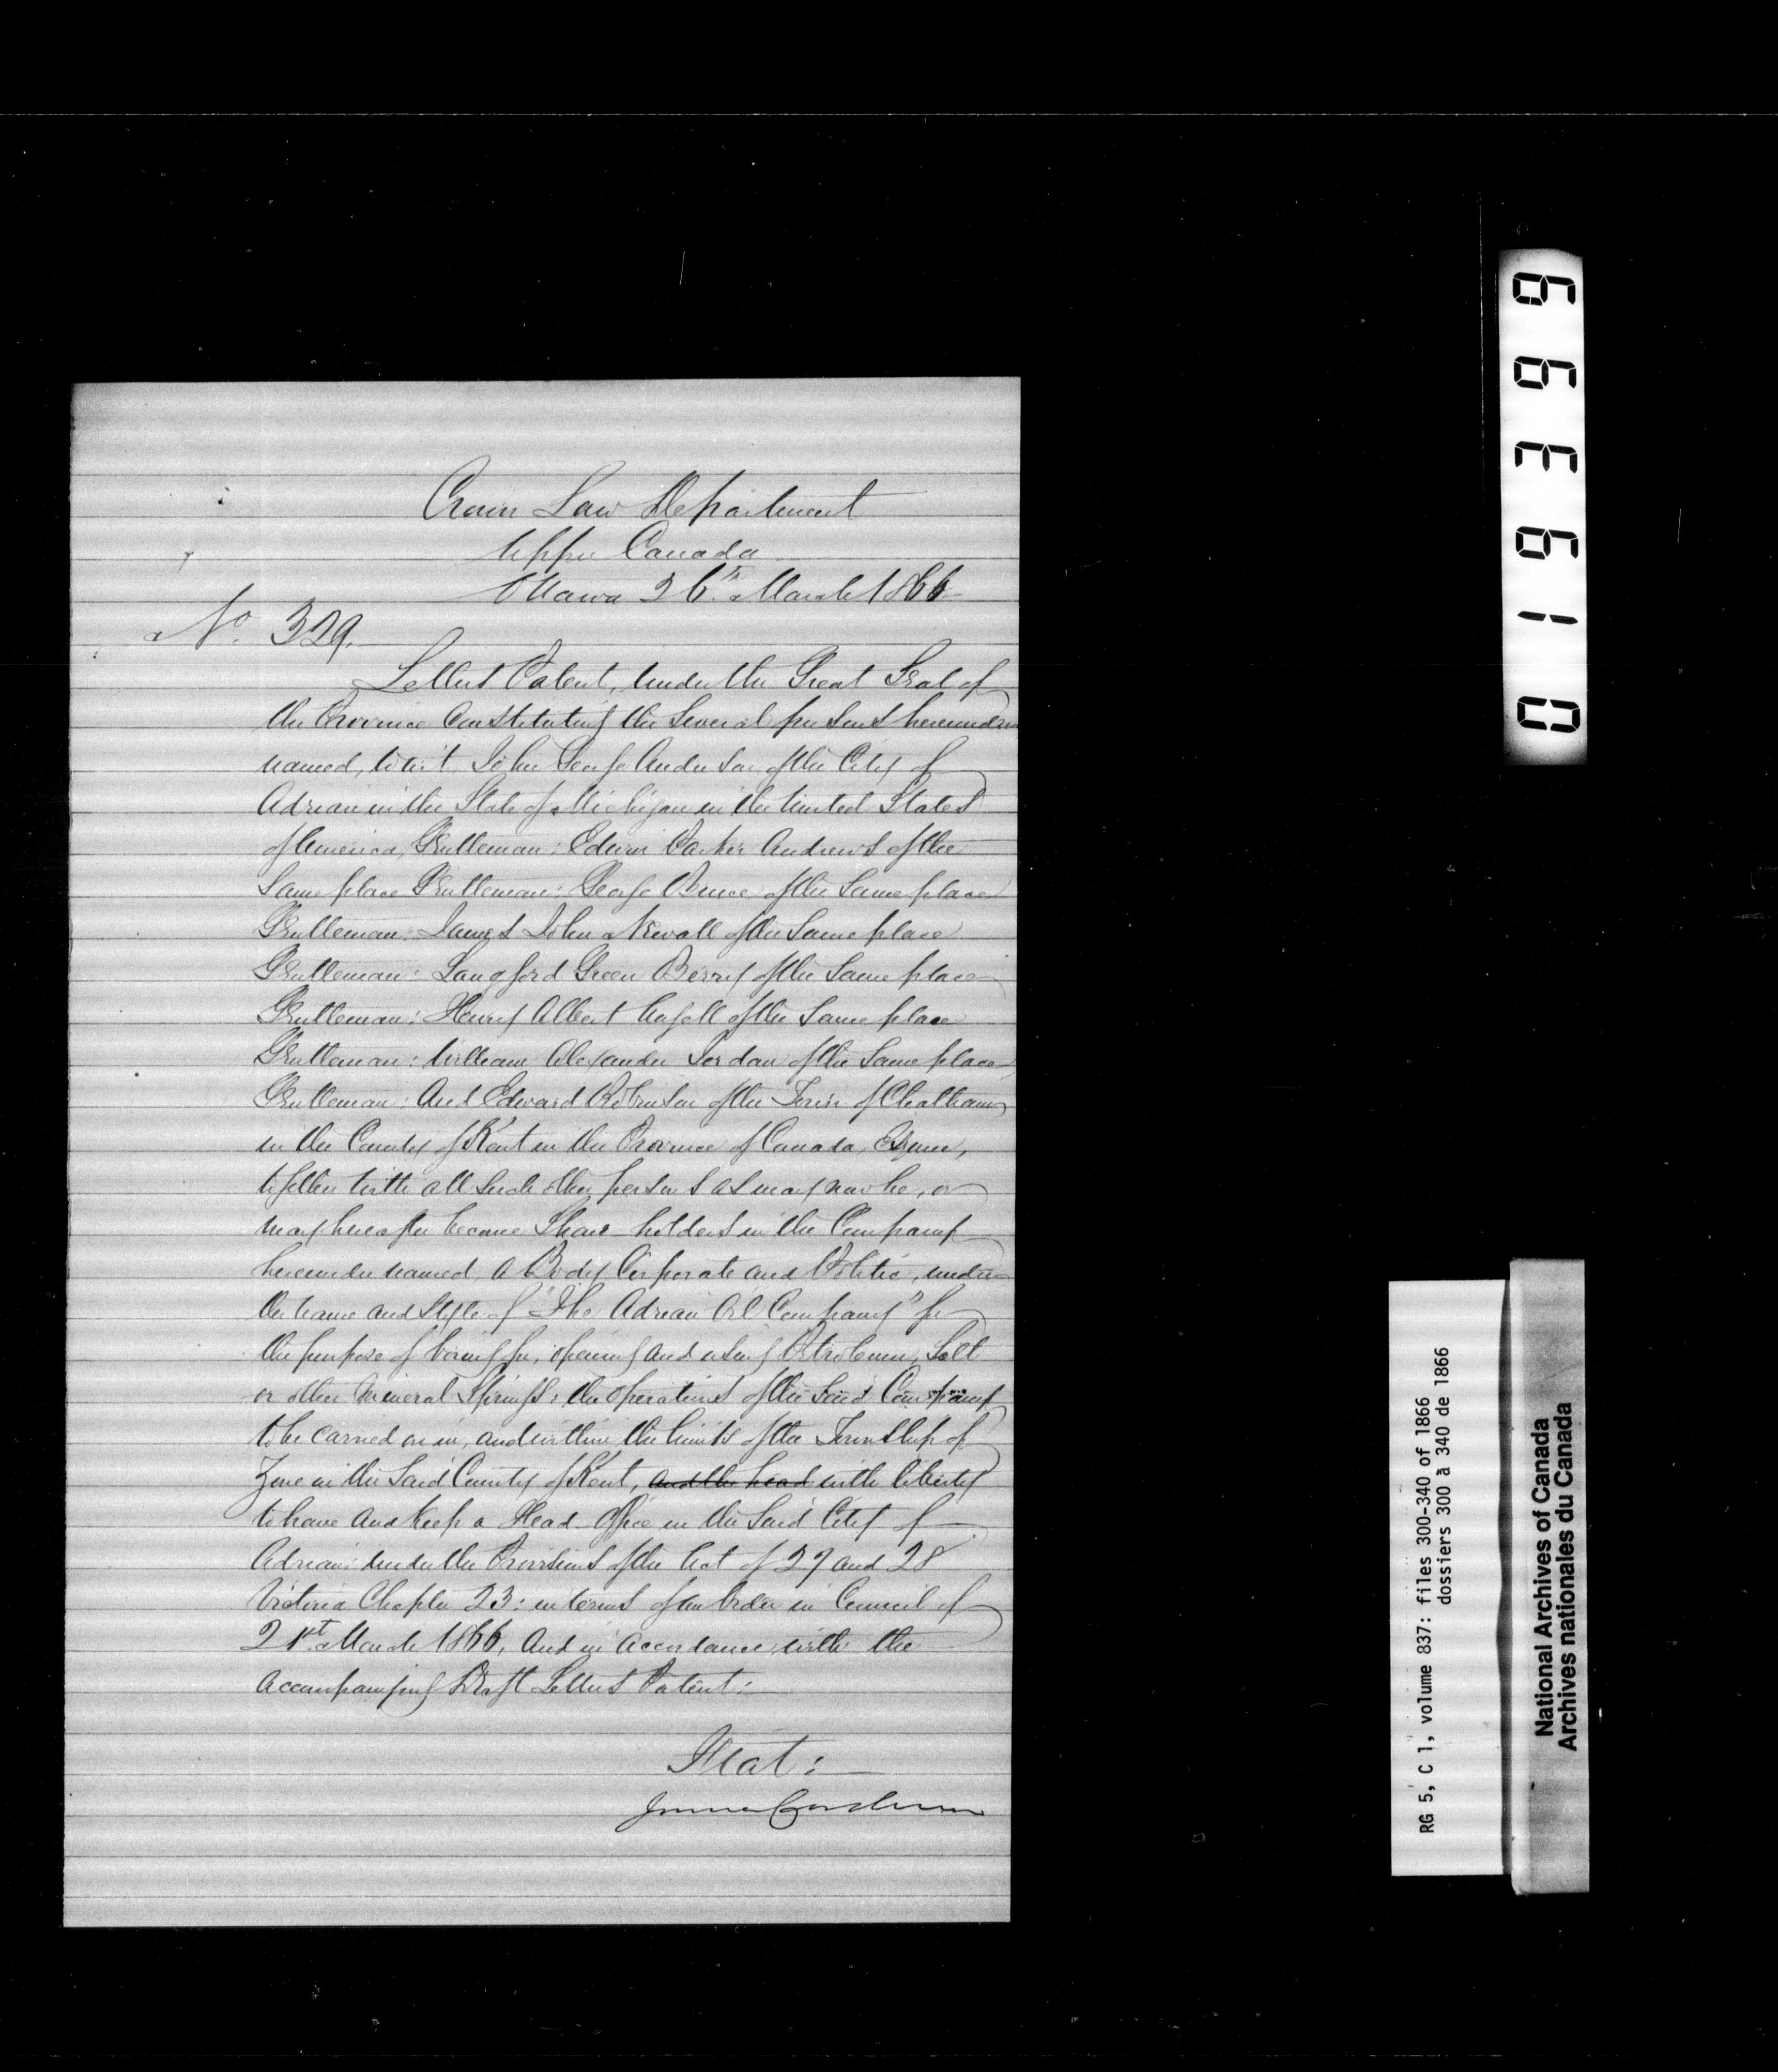 Crown Law Department
Upper Canada
Ottawa 26th March 1866
No. 329.
Letters Patent, under the Great Seal of
the Province Constituting the Several persons hereunder
named, to wit. John George Anderson of the City of
Adrian in the State of Michigan in the United States
of America, Gentleman: Edwin Parker Andrews of the
Same place Gentleman: George Bruce of the Same place
Gentleman: James John Newall of the Same place
Gentleman: Langford Green Berry of the Same place
Gentleman: Henry Albert Angell of the Same place
Gentleman: William Alexander Jordan of the Same place
Gentleman: And Edward Robinson of the Town of Chatham
in the County of Kent in the Province of Canada, Esquire,
together with all such other persons as may now be, or
may hereafter become Share-holders in the Company
hereunder named, a Body Corporate and Politic, under
the name and Style of "The Adrian Oil Company" for
the purpose of boring for, opening and using Petroleum, Salt
or other Mineral Springs: the operations of the said Company
to be carried on in, and within the limits of the Township of
Zone in the Said County of Kent, and the head with liberty
to have and keep a Head-Office in the Said City of
Adrian: under the Provisions of the Act of 27 and 28
Victoria Chapter 23: in terms of an Order in Council of
21st March 1866, And in accordance with the
accompanying Draft Letters Patent:
Fiat:
019366
RG 5, C 1, volume 837: files 300-340 of 1866
dossiers 300 à 340 de 1866
National Archives of Canada
Archives nationales du Canada